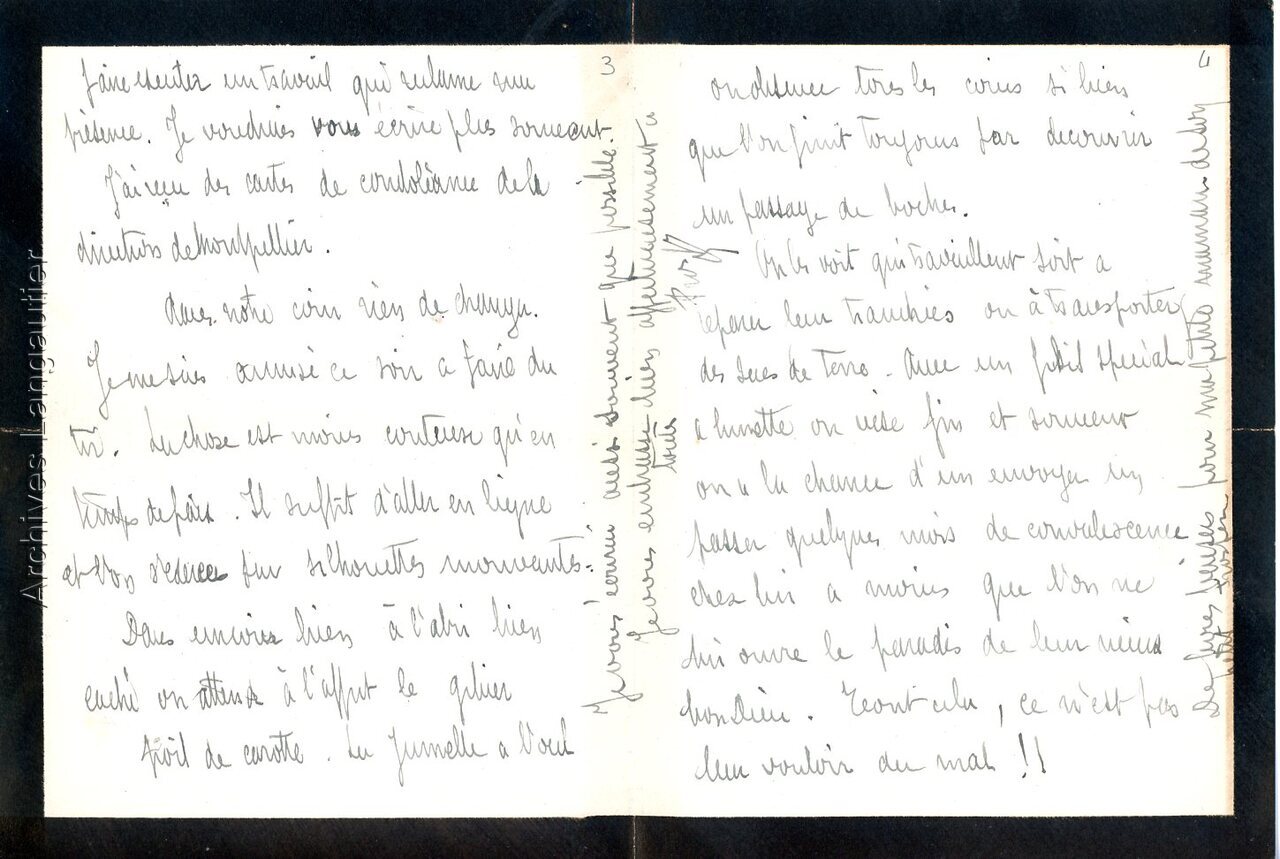 3
faire exécuter un travail qui réclame ma
présence. Je voudrais vous écrire plus souvent.
J'ai reçu des cartes de condoléance de la
direction de Montpellier.
Dans notre coin rien de changé.
Je me suis amusé ce soir a faire du
tir. La chose est moins couteuse qu'en
temps de paix. Il suffit d'aller en ligne
et l'on s'exerce sur silhouettes mouvantes.
Dans un coin bien à l'abri bien
caché on attend à l'affut le gibier
poil de carotte. La Jumelle a l'oeil
4
on observe tous les coins si bien
que l'on finit toujours par decouvrir
un passage de boches.
On les voit qui travaillent soit a
reparer leur tranchées ou à transporter
des sacs de terre. Avec un fusil special
a lunette on vise fin et souvent
on a la chance d'en envoyer un
passer quelques mois de convalescence
chez lui a moins que l'on ne
lui ouvre le paradis de leur vieux
bon Dieu. Tout cela, ce n'est pas
leur vouloir du mal !!
Je vous écrirai aussi souvent que possible.
Je vous embrasse bien affectueusement a
tous
De gros baisers pour ma petite maman de son
petit
Archives Langautier